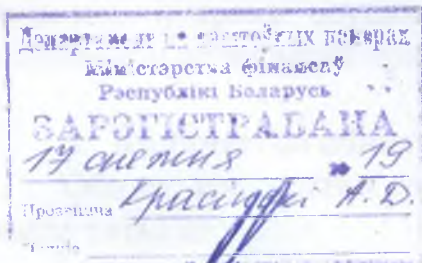 Дэпартамент па каштоўных паперах
Міністэрства фінансаў
Рэспублікі Беларусь
ЗАРЭГІСТРАВАНА
17 19
Прозвішча А. Д.